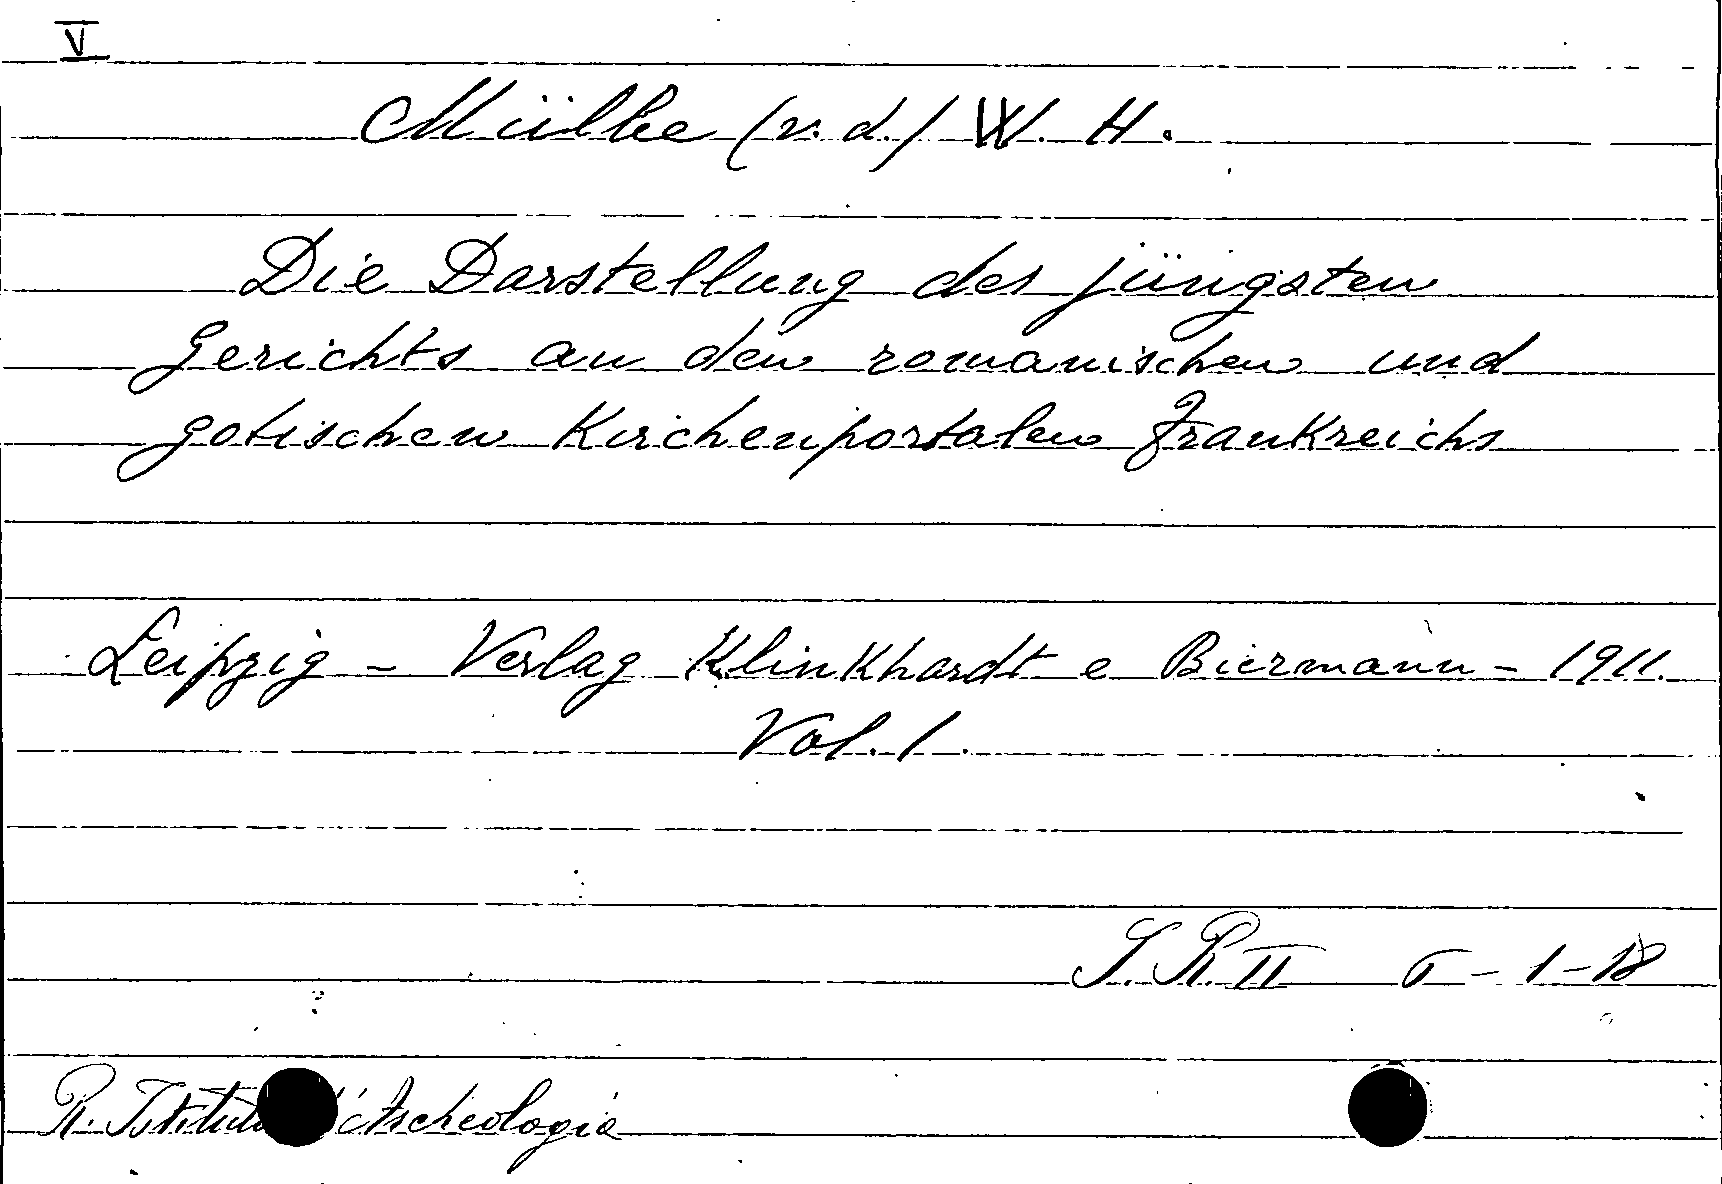 V
Mülbe (v. d.) W. H.
Die Darstellung des jüngsten
Gerichts an den romanischen und
gotischen Kirchenportalen Frankreichs
Leipzig - Verlag Klinkhardt e Biermann - 1911.
Vol. 1.
S. R. II - 1 - 18
R. Archeologia